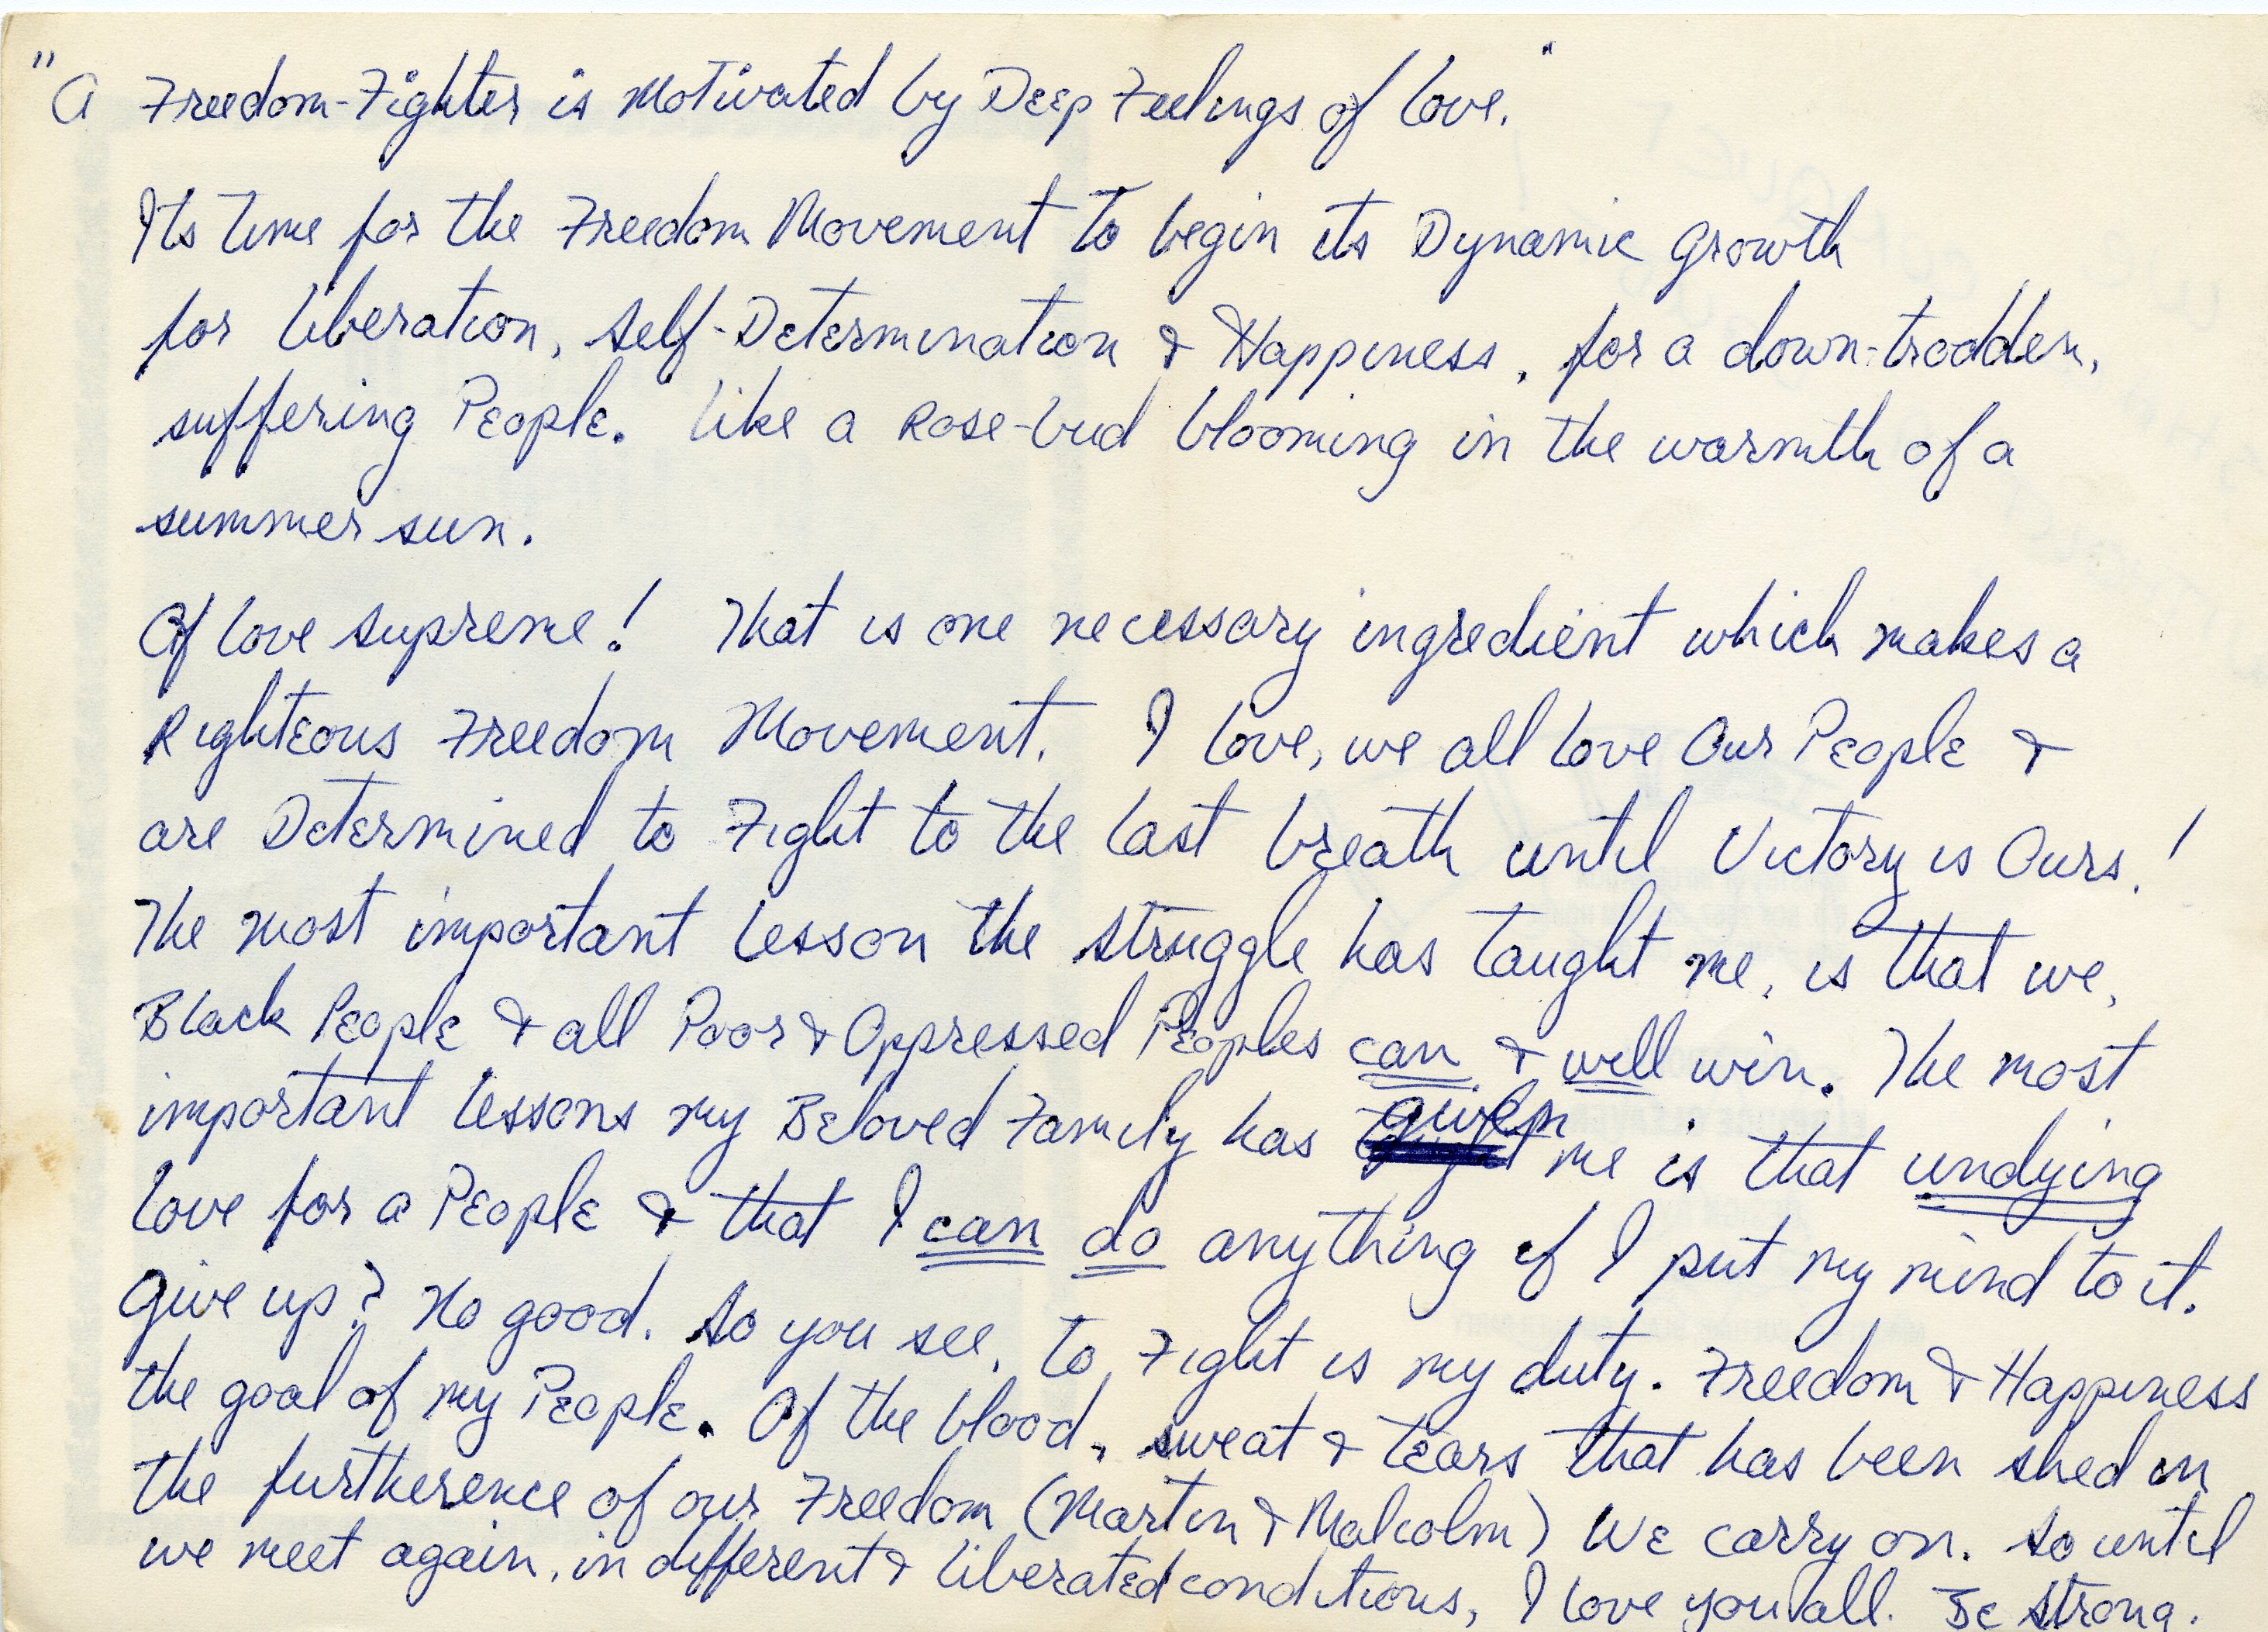 "A Freedom-Fighter is Motivated by Deep Feelings of Love."
Its time for the Freedom Movement to begin its Dynamic Growth
for liberation, self-Determination & Happiness, for a down-trodden,
suffering People. Like a Rose-bud blooming in the warmth of a
summer sun.
Of love supreme! That is one necessary ingredient which makes a
Righteous Freedom Movement. I love, we all love Our People &
are Determined to Fight to the last breath until Victory is Ours!
The most important lesson the struggle has taught me, is that we,
Black People & all Poor & Oppressed Peoples can & will win. The most
important lessons my Beloved Family has given me is that undying
love for a People & that I can do anything if I put my mind to it.
Give up? No good. So you see, to Fight is my duty. Freedom & Happiness
the goal of my People. Of the blood, sweat & tears that has been shed in
the furtherence of our Freedom (Martin & Malcolm) We carry on. So until
we meet again, in different & liberated conditions, I love you all. Be strong.